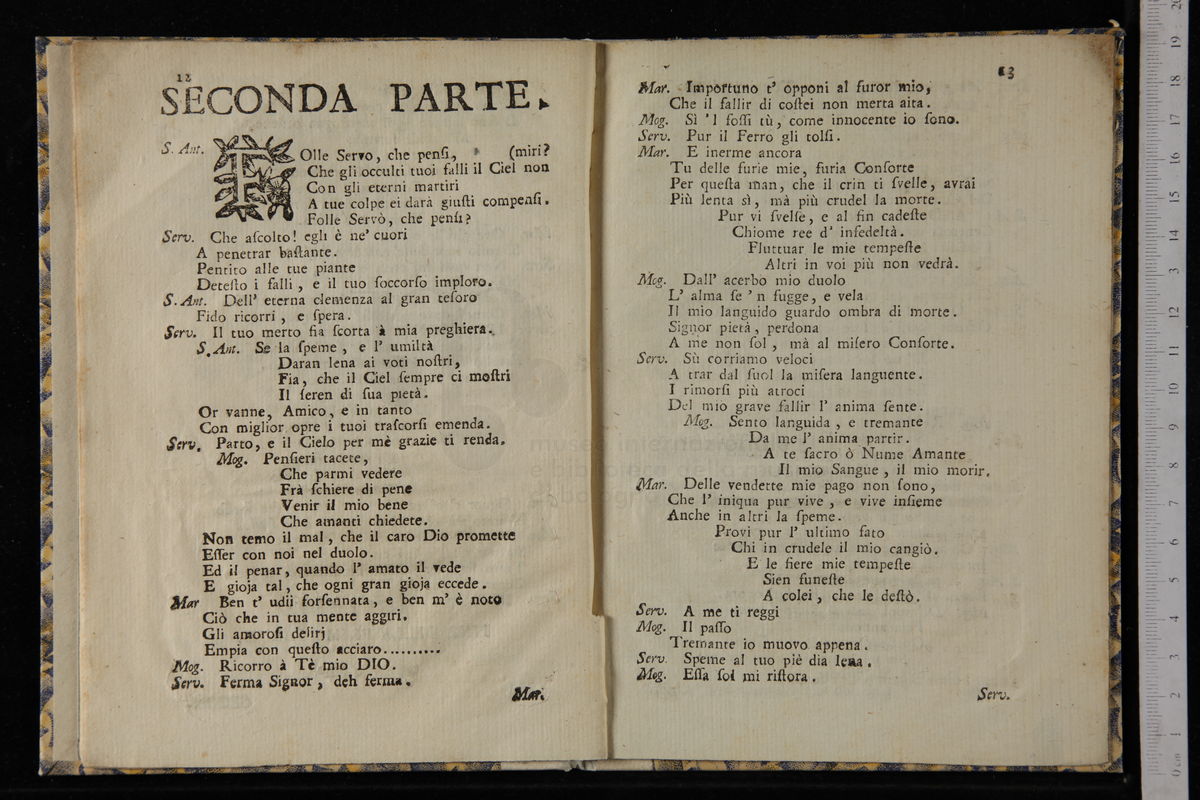 12
SECONDA PARTE.
S. Ant. FOlle Servo, che penſi, (miri?
Che gli occulti tuoi falli il Ciel non
Con gli eterni martiri
A tue colpe ei darà giuſti compenſi.
Folle Servò, che penſi?
Serv. Che aſcolto! egli è ne' cuori
A penetrar baſtante.
Pentito alle tue piante
Deteſto i falli, e il tuo ſoccorſo imploro.
S. Ant. Dell' eterna clemenza al gran teſoro
Fido ricorri, e ſpera.
Serv. Il tuo merto fia ſcorta à mia preghiera.
S. Ant. Se la ſpeme, e l' umiltà
Daran lena ai voti noſtri,
Fia, che il Ciel ſempre ci moſtri
Il ſeren di ſua pietà.
Or vanne, Amico, e in tanto
Con miglior opre i tuoi traſcorſi emenda.
Serv. Parto, e il Cielo per mè grazie ti renda.
Mog. Penſieri tacete,
Che parmi vedere
Frà ſchiere di pene
Venir il mio bene
Che amanti chiedete.
Non temo il mal, che il caro Dio promette
Eſſer con noi nel duolo.
Ed il penar, quando l' amato il vede
E gioja tal, che ogni gran gioja eccede.
Mar Ben t' udii forſennata, e ben m' è noto
Ciò che in tua mente aggiri.
Gli amoroſi deſirj
Empia con queſto acciaro..........
Mog. Ricorro à Tè mio DIO.
Serv. Ferma Signor, deh ferma.
Mar.
13
Mar. Importuno t' opponi al furor mio,
Che il fallir di coſtei non merta aita.
Mog. Sì 'l foſſi tù, come innocente io ſono.
Serv. Pur il Ferro gli tolſi.
Mar. E inerme ancora
Tu delle furie mie, furia Conſorte
Per queſta man, che il crin ti ſvelle, avrai
Più lenta sì, mà più crudel la morte.
Pur vi ſvelſe, e al fin cadeſte
Chiome ree d' infedeltà.
Fluttuar le mie tempeſte
Altri in voi più non vedrà.
Mog. Dall' acerbo mio duolo
L' alma ſe 'n fugge, e vela
Il mio languido guardo ombra di morte.
Signor pietà, perdona
A me non ſol, mà al miſero Conſorte.
Serv. Sù corriamo veloci
A trar dal ſuol la miſera languente.
I rimorſi più atroci
Del mio grave fallir l' anima ſente.
Mog. Sento languida, e tremante
Da me l' anima partir.
A te ſacro ò Nume Amante
Il mio Sangue, il mio morir.
Mar. Delle vendette mie pago non ſono,
Che l' iniqua pur vive, e vive inſieme
Anche in altri la ſpeme.
Provi pur l' ultimo fato
Chi in crudele il mio cangiò.
E le fiere mie tempeſte
Sien funeſte
A colei, che le deſtò.
Serv. A me ti reggi
Mog. Il paſſo
Tremante io muovo appena.
Serv. Speme al tuo piè dia lena.
Mog. Eſſa ſol mi riſtora.
Serv.